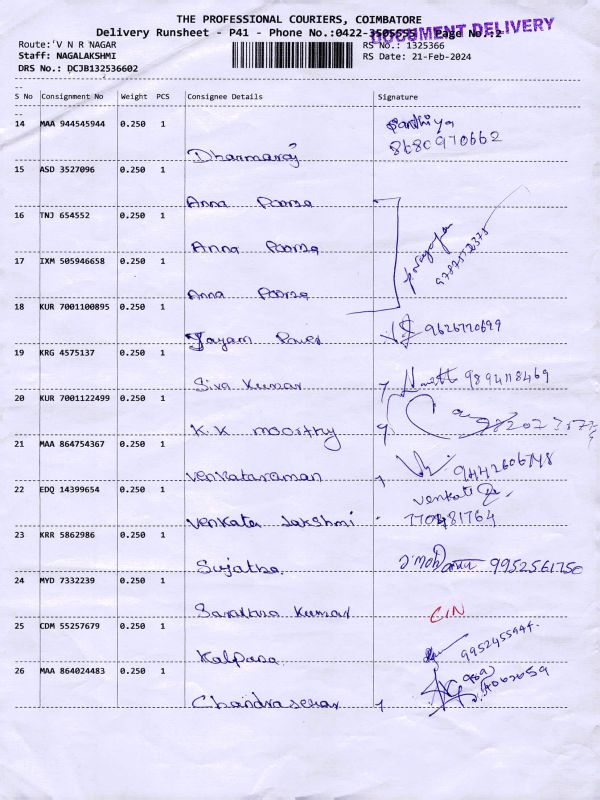 THE PROFESSIONAL COURIERS, COIMBATORE
DOCUMENT DELIVERY
Delivery Runsheet - P41 - Phone No.:0422-3505555 Page No.:2
Route:'V N R NAGAR RS No.: 1325366
Staff: NAGALAKSHMI RS Date: 21-Feb-2024
DRS No.: DCJB132536602
S No Consignment No Weight PCS Consignee Details Signature
14 MAA 944545944 0.250 1
8680970662
Dharmaraj
15 ASD 3527096 0.250 1
Anna Poorna
16 TNJ 654552 0.250 1
Anna Poorna
17 IXM 505946658 0.250 1
Anna Poorna
18 KUR 7001100895 0.250 1
Jayam Power 9626770699
19 KRG 4575137 0.250 1
Siva Kumar 9894118469
20 KUR 7001122499 0.250 1
K.K moorthy
21 MAA 864754367 0.250 1
Venkataraman 9442606748
22 EDQ 14399654 0.250 1
Venkata Lakshmi
23 KRR 5862986 0.250 1
Sujatha 9952561750
24 MYD 7332239 0.250 1
Kumar
25 CDM 55257679 0.250 1
Kalpana
26 MAA 864024483 0.250 1
Chandrasekar